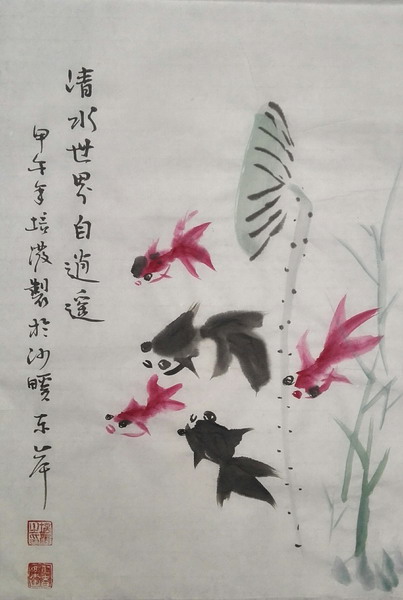 清水世界自逍遥
甲午年培浚製於沙暖东岸